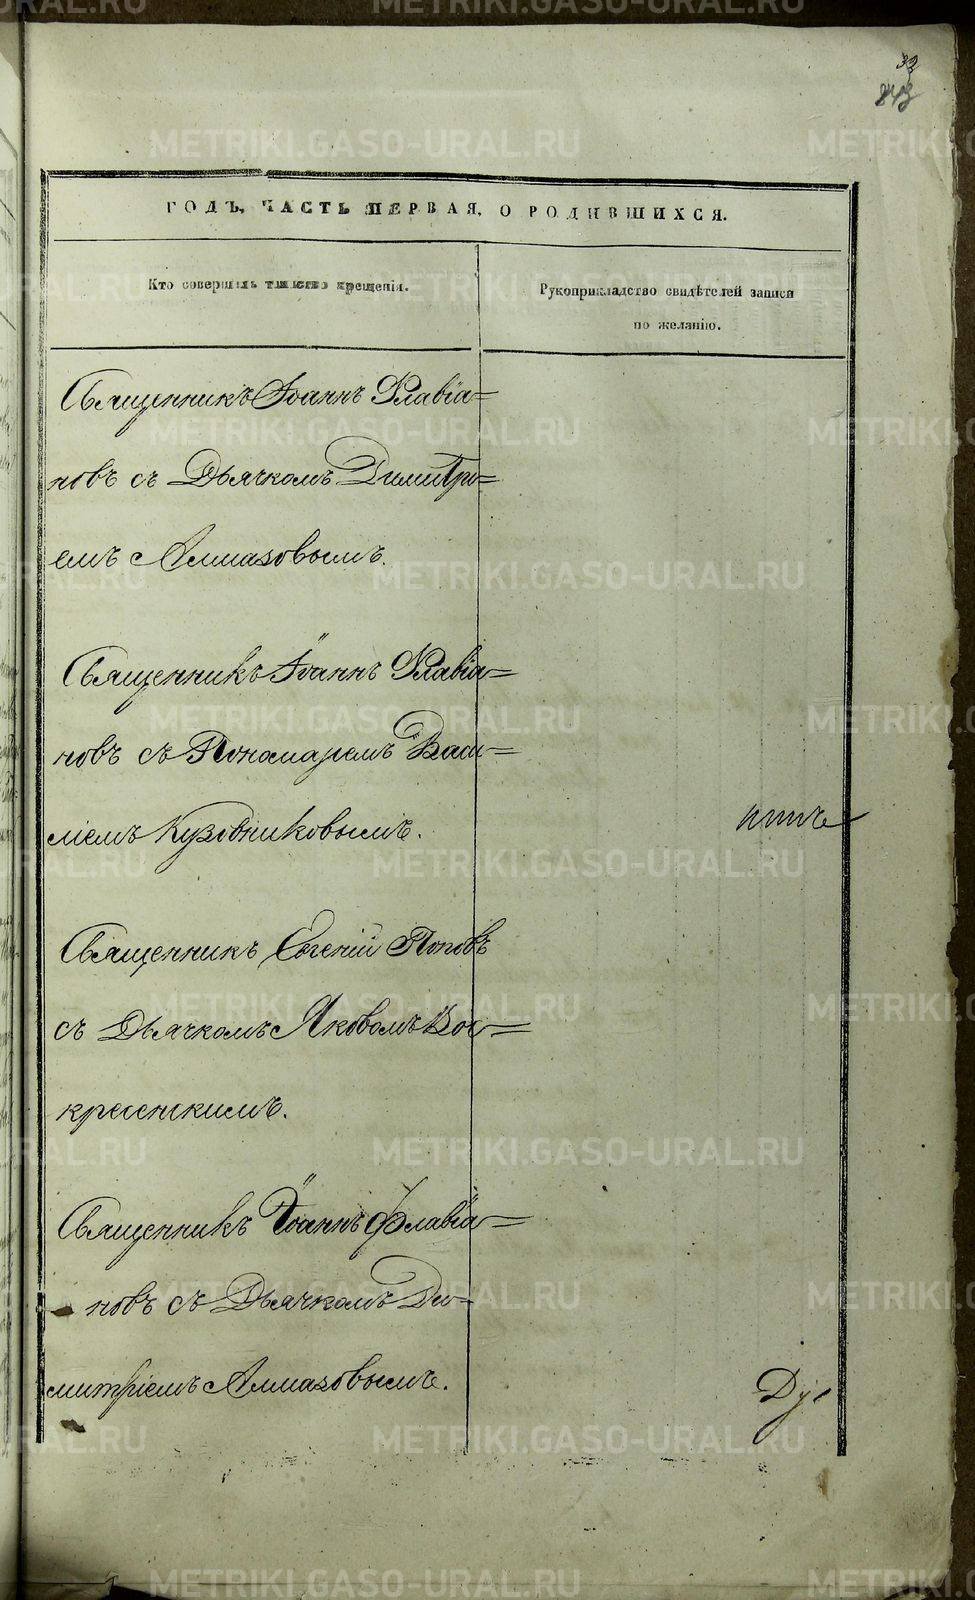 33
843
ГОДЪ, ЧАСТЬ ПЕРВАЯ, О РОДИВШИХСЯ.
Кто совершилъ таинство крещенія.
Рукоприкладство свидѣтелей записи
по желанію.
Священникъ Іоаннъ Флавіа=
новъ съ Дьячкомъ Димитрі=
емъ Алмазовымъ.
Священникъ Іоаннъ Флавіа=
новъ съ Пономаремъ Васи=
ліемъ Кузовниковымъ.
Священникъ Евгеній Поповъ
съ Дьячкомъ Яковомъ Вос=
кресенскимъ.
Священникъ Іоаннъ Флавіа=
новъ съ Дьячкомъ Ди=
митріемъ Алмазовымъ.
METRIKI.GASO-URAL.RU